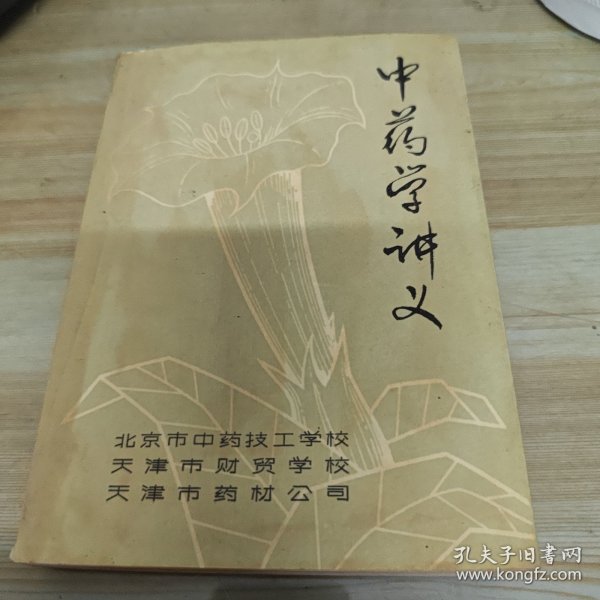 中药学讲义
北京市中药技工学校
天津市财贸学校
天津市药材公司
孔夫子旧書网
www.kongfz.com